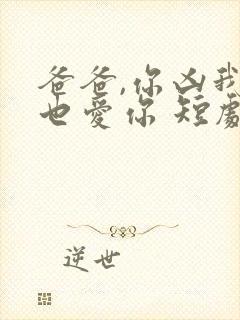 爸爸,你凶我
也爱你 短剧
逆世